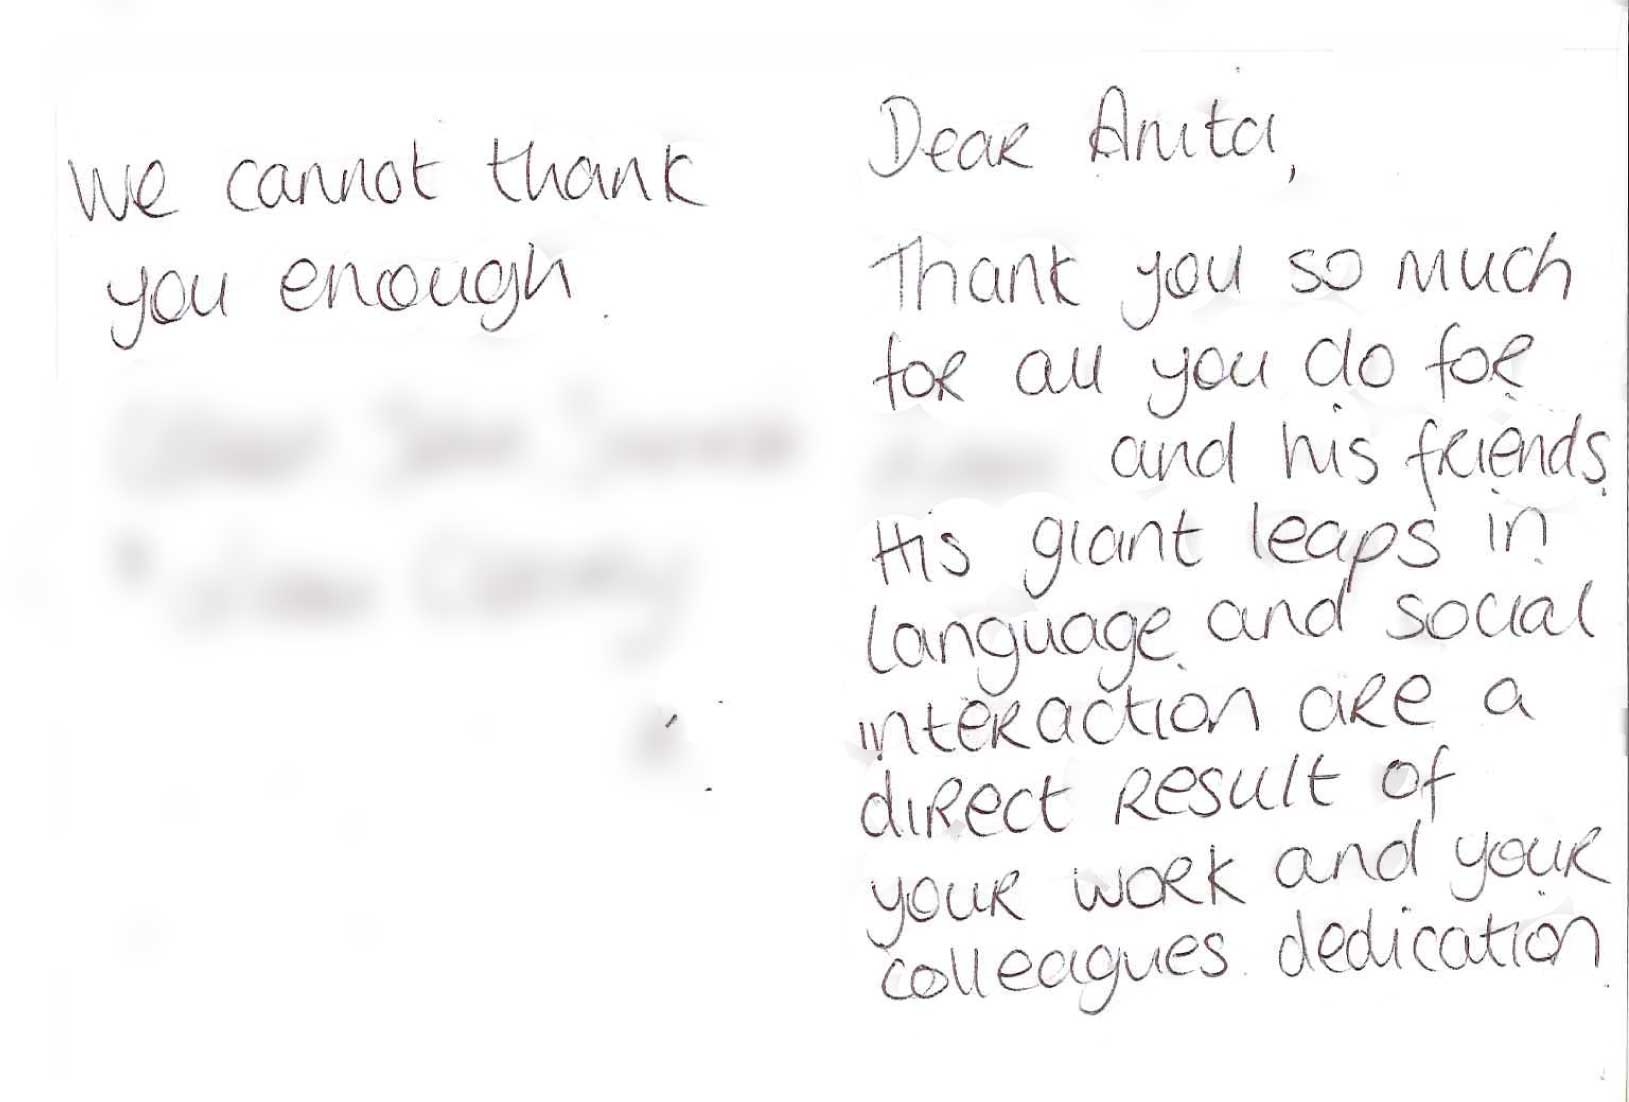 We cannot thank
you enough.
Dear Anita,
Thank you so much
for all you do for
and his friends.
His giant leaps in
language and social
interaction are a
direct result of
your work and your
colleagues dedication.